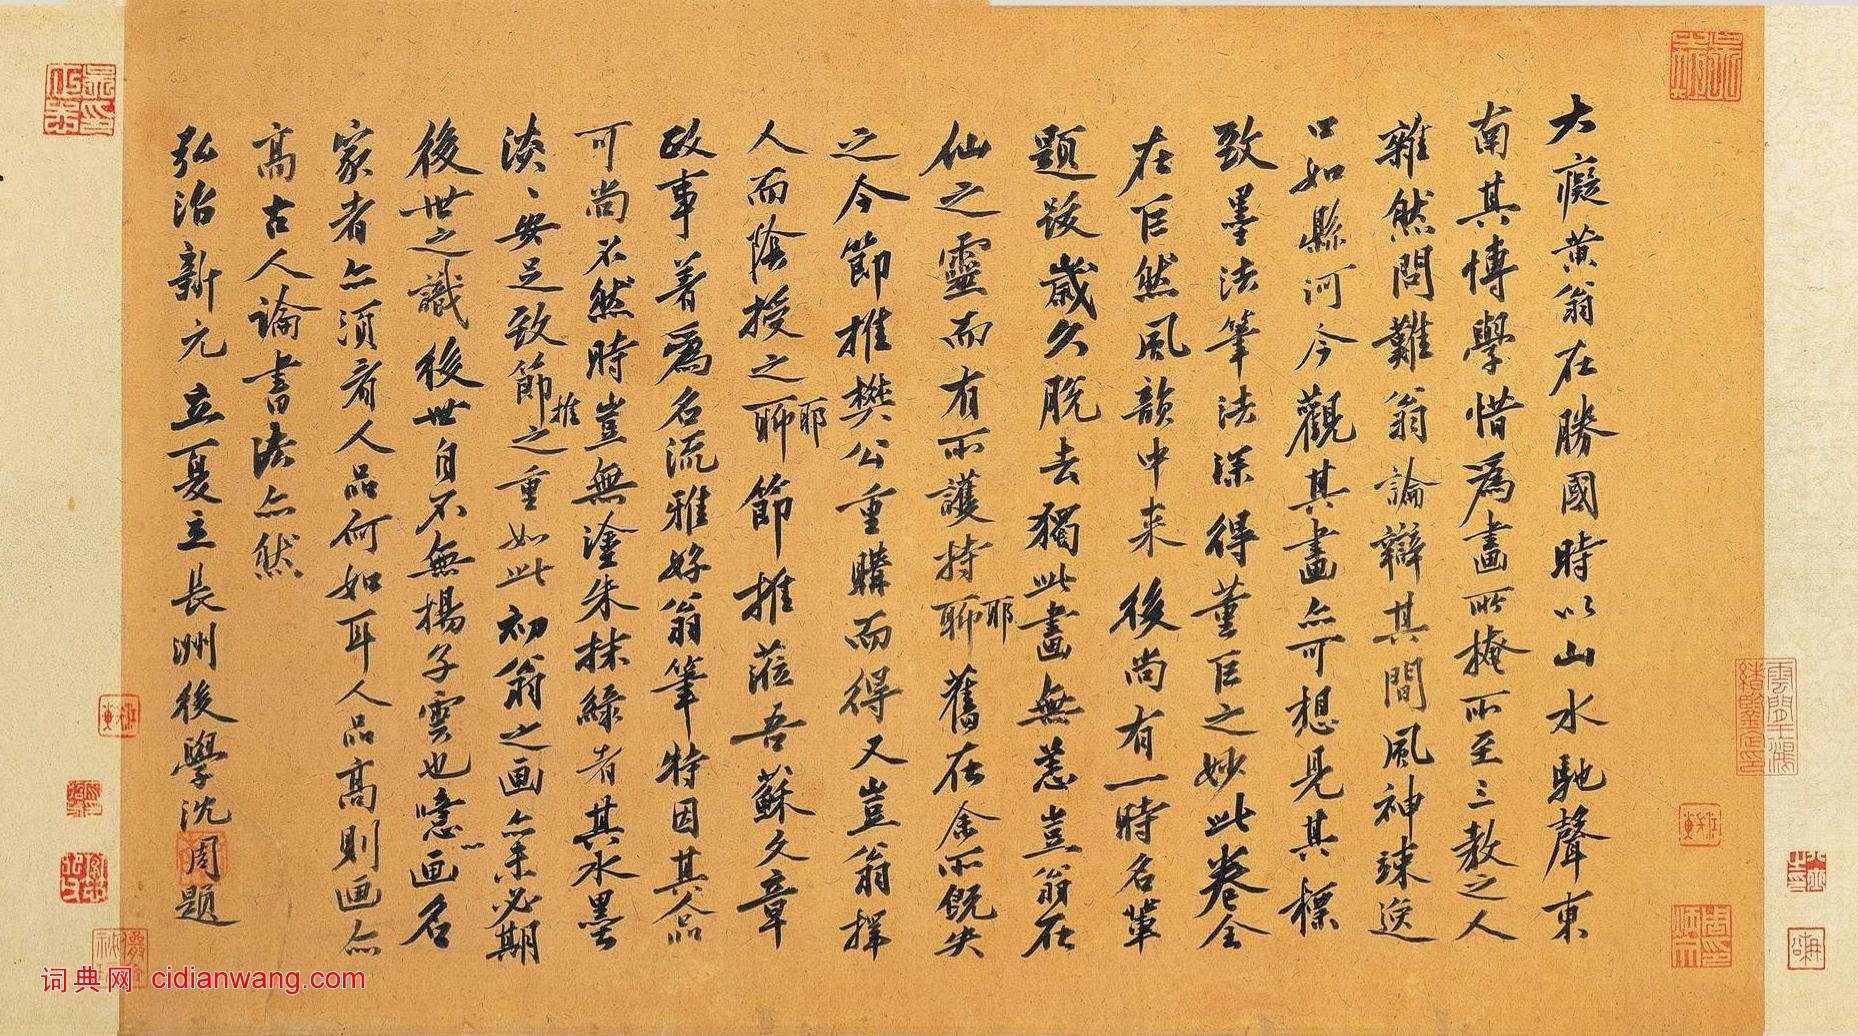 大癡黃翁在勝國時以山水馳聲東
南其博學惜為畫所掩所至三教之人
雜然問難翁論辯其間風神竦逸
口如縣河今觀其畫亦可想見其標
致墨法筆法深得董巨之妙此卷全
在巨然風韻中来後尚有一時名輩
題跋歲久脫去獨此畫無恙豈翁在
仙之靈而有所護持聊耶舊在余所既失
之今節推樊公重購而得又豈翁擇
人而陰授之聊耶節推蒞吾蘇文章
政事著為名流雅好翁筆特因其人品
可尚不然時豈無塗朱抹綠者其水墨
淡淡安足致節推之重如此初翁之画亦未必期
後世之識後世自不無揚子雲也噫画名
家者亦須看人品何如耳人品高則画亦
高古人論書法亦然
弘治新元立夏立長洲後學沈周題
詞典网 cidianwang.com